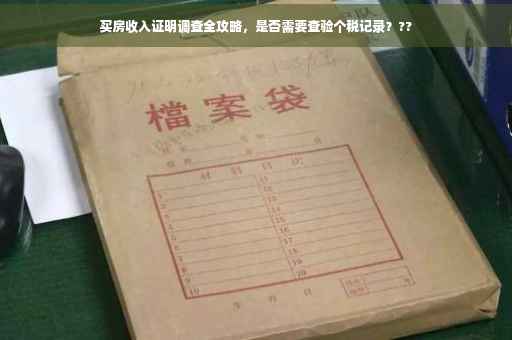 买房收入证明调查全攻略，是否需要查验个税记录？??
檔案袋
材料目次
1 11
2 12
3 13
4 14
5 15
6 16
7 17
8 18
9 19
10 20
年 月 日